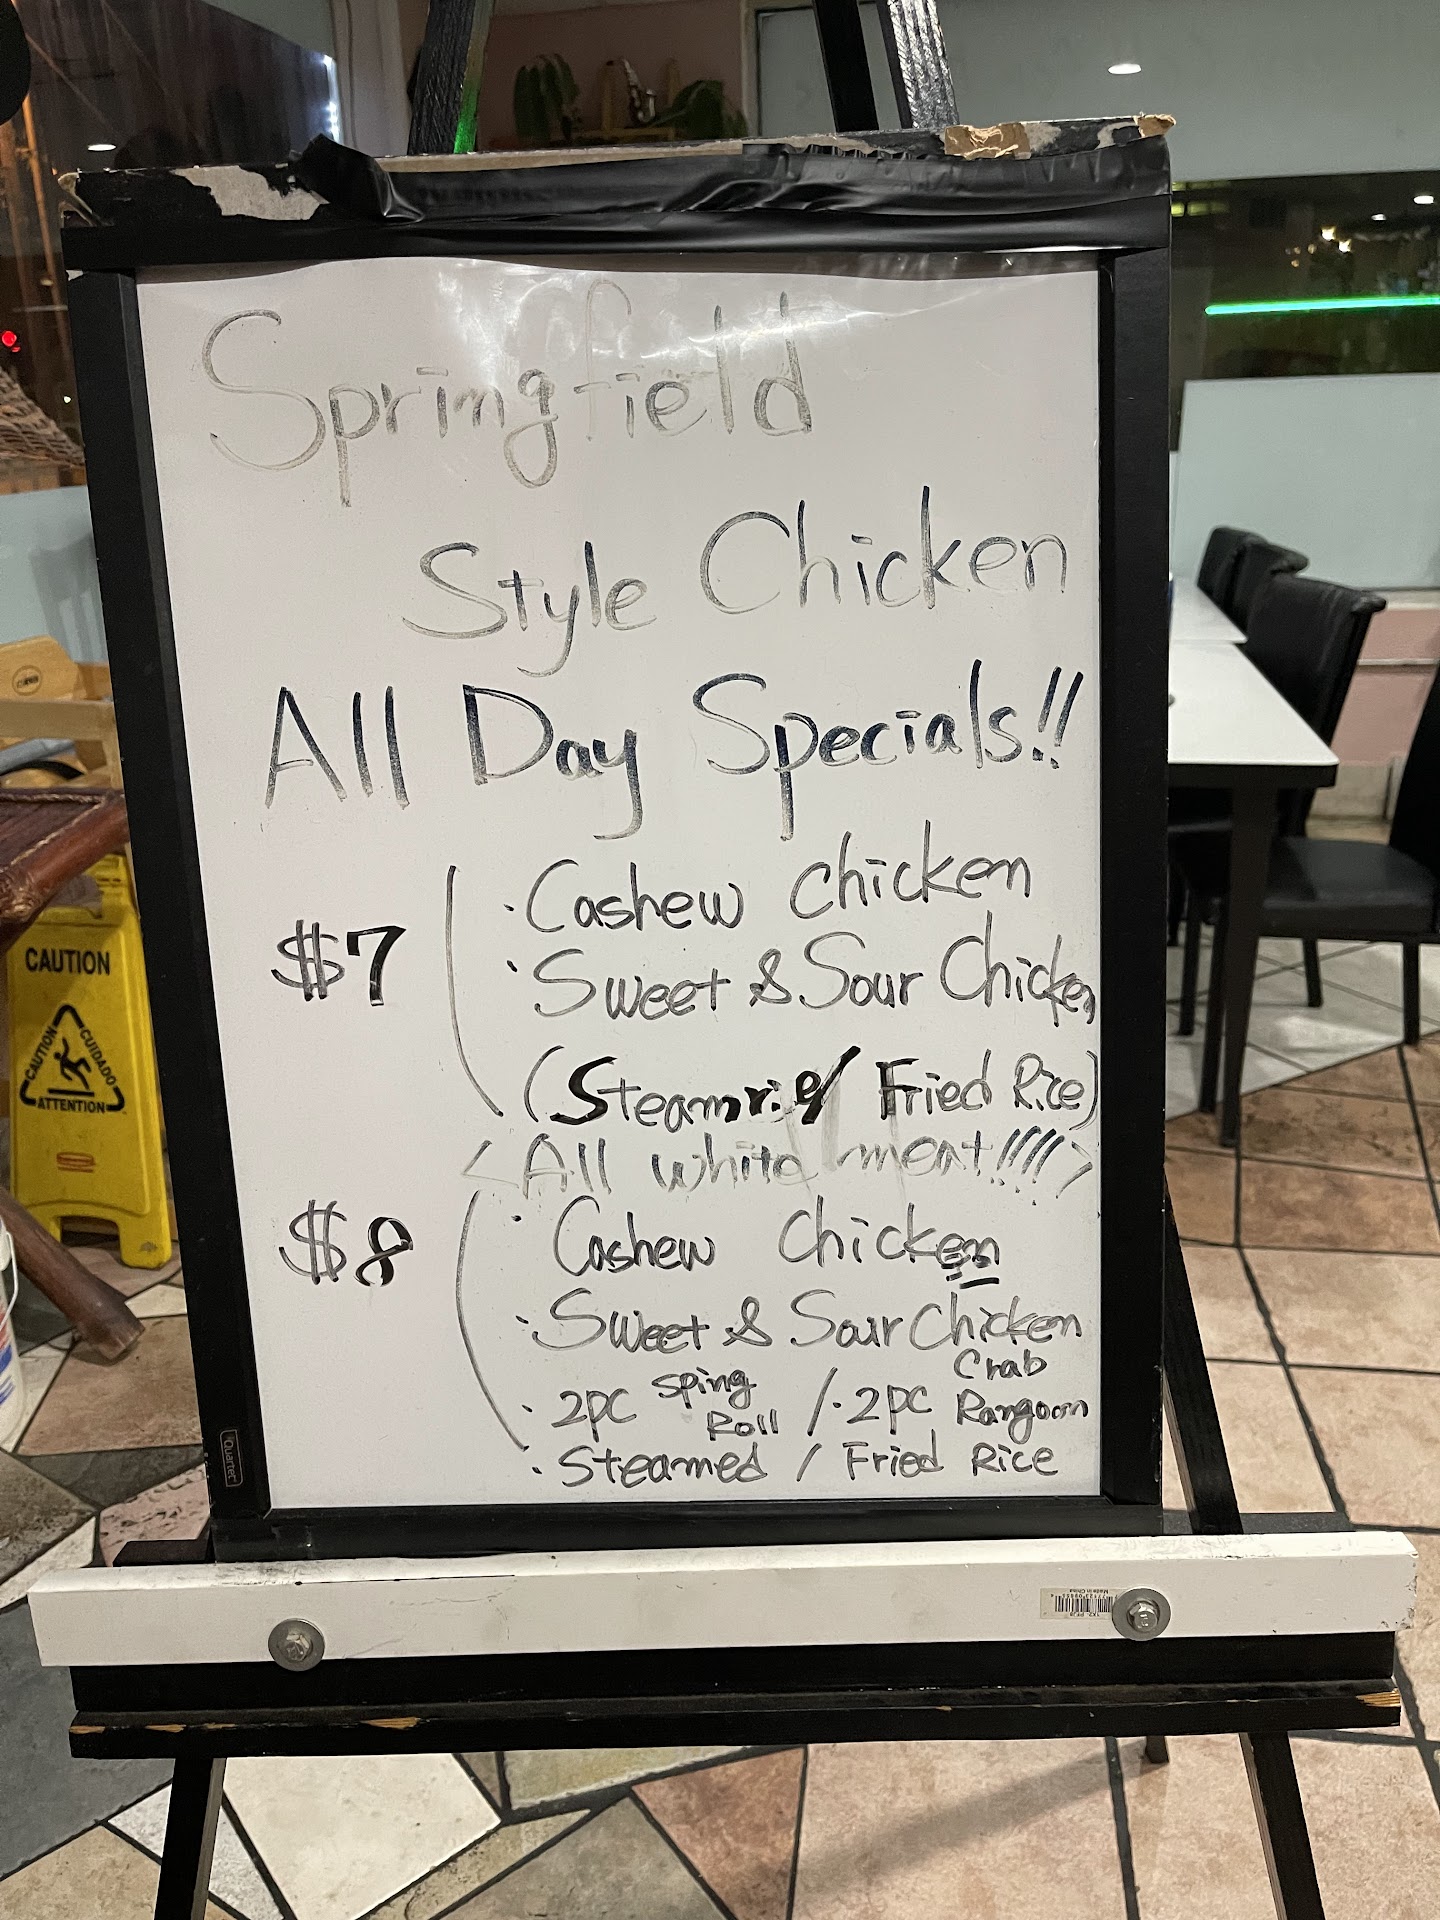 Springfield
Style Chicken
All Day Specials!!
$7
· Cashew chicken
· Sweet & Sour Chicken
(Steamrice/ Fried Rice)
<All white meat!!!!>
$8
· Cashew Chicken
· Sweet & Sour Chicken
· 2pc Sping Roll / · 2pc Crab Rangoon
· Steamed / Fried Rice
Quartet
CAUTION
CAUTION
CUIDADO
ATTENTION
Made in China